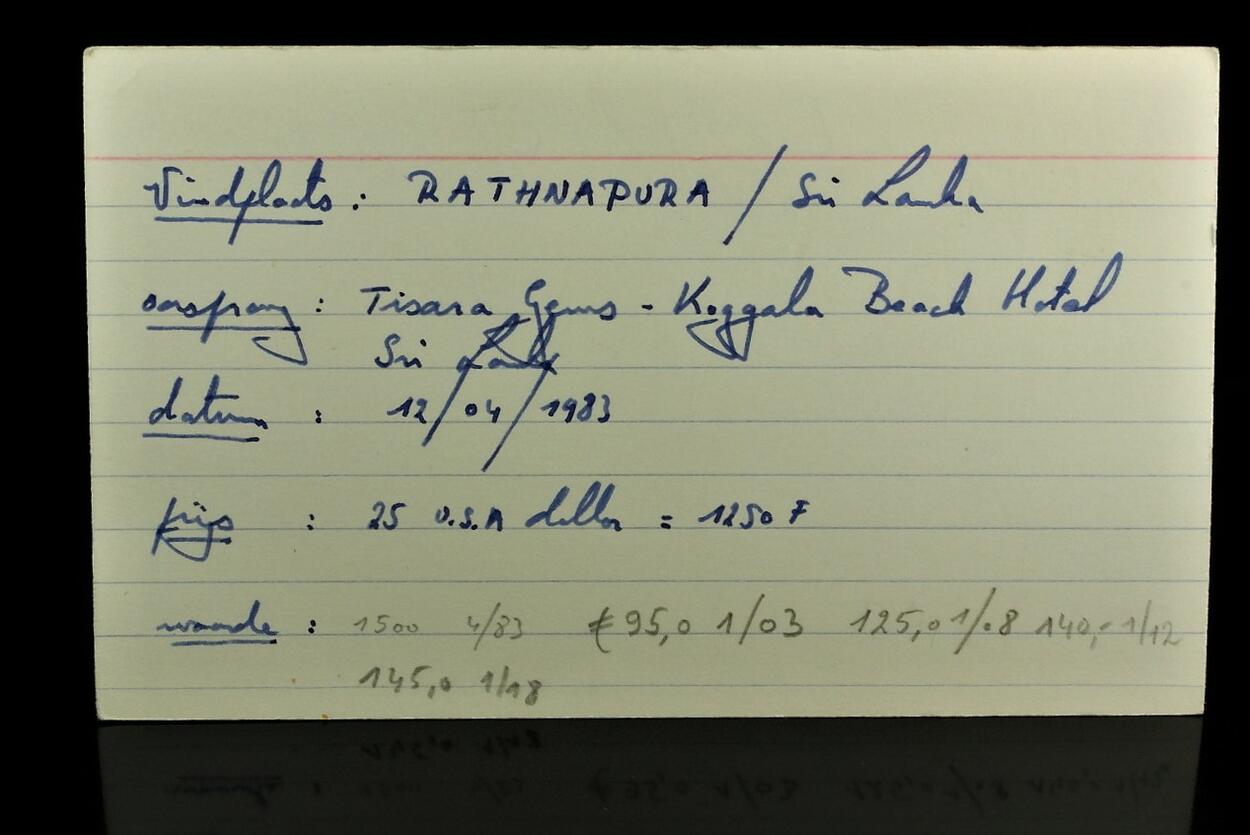 Vindplaats : RATHNAPURA / Sri Lanka
oorsprong : Tisara Gems - Koggala Beach Hotel
Sri Lanka
datum : 12/04/1983
prijs : 25 U.S.A dollar = 1250 F
waarde : 1500 4/83 €95,0 1/03 125,0 1/08 140,- 1/12
145,0 1/18